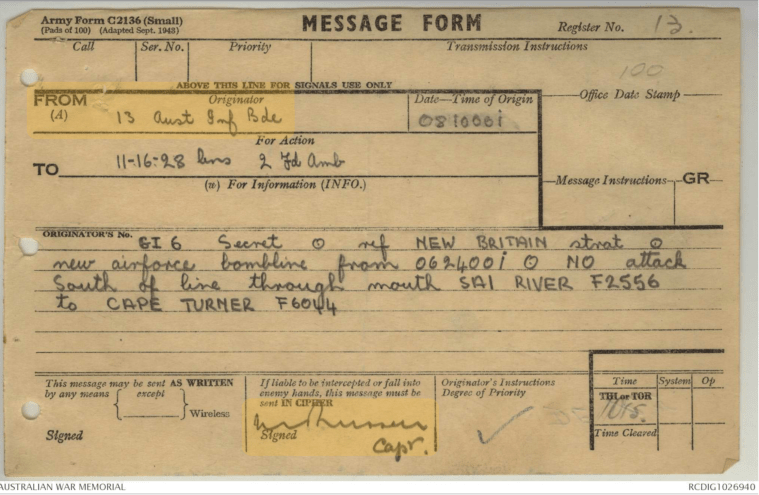 Army Form C2136 (Small)
(Pads of 100) (Adapted Sept. 1943)
MESSAGE FORM
Register No. 13.
Call
Ser. No.
Priority
Transmission Instructions
100
ABOVE THIS LINE FOR SIGNALS USE ONLY
FROM
(A)
Originator
13 Aust Inf Bde
Date—Time of Origin
081000i
Office Date Stamp
For Action
TO
11-16-28 bns 2 Fd Amb
(w) For Information (INFO.)
Message Instructions
GR
ORIGINATOR'S No.
GI 6 Secret O ref NEW BRITAIN strat O
new airforce bombline from 062400i O NO attack
South of line through mouth SAI RIVER F2556
to CAPE TURNER F6044
This message may be sent AS WRITTEN
by any means
except
Wireless
Signed
If liable to be intercepted or fall into
enemy hands, this message must be
sent IN CIPHER
Signed
Capt.
Originator's Instructions
Degree of Priority
Time
System
Op
THI or TOR
1015
Time Cleared
AUSTRALIAN WAR MEMORIAL
RCDIG1026940